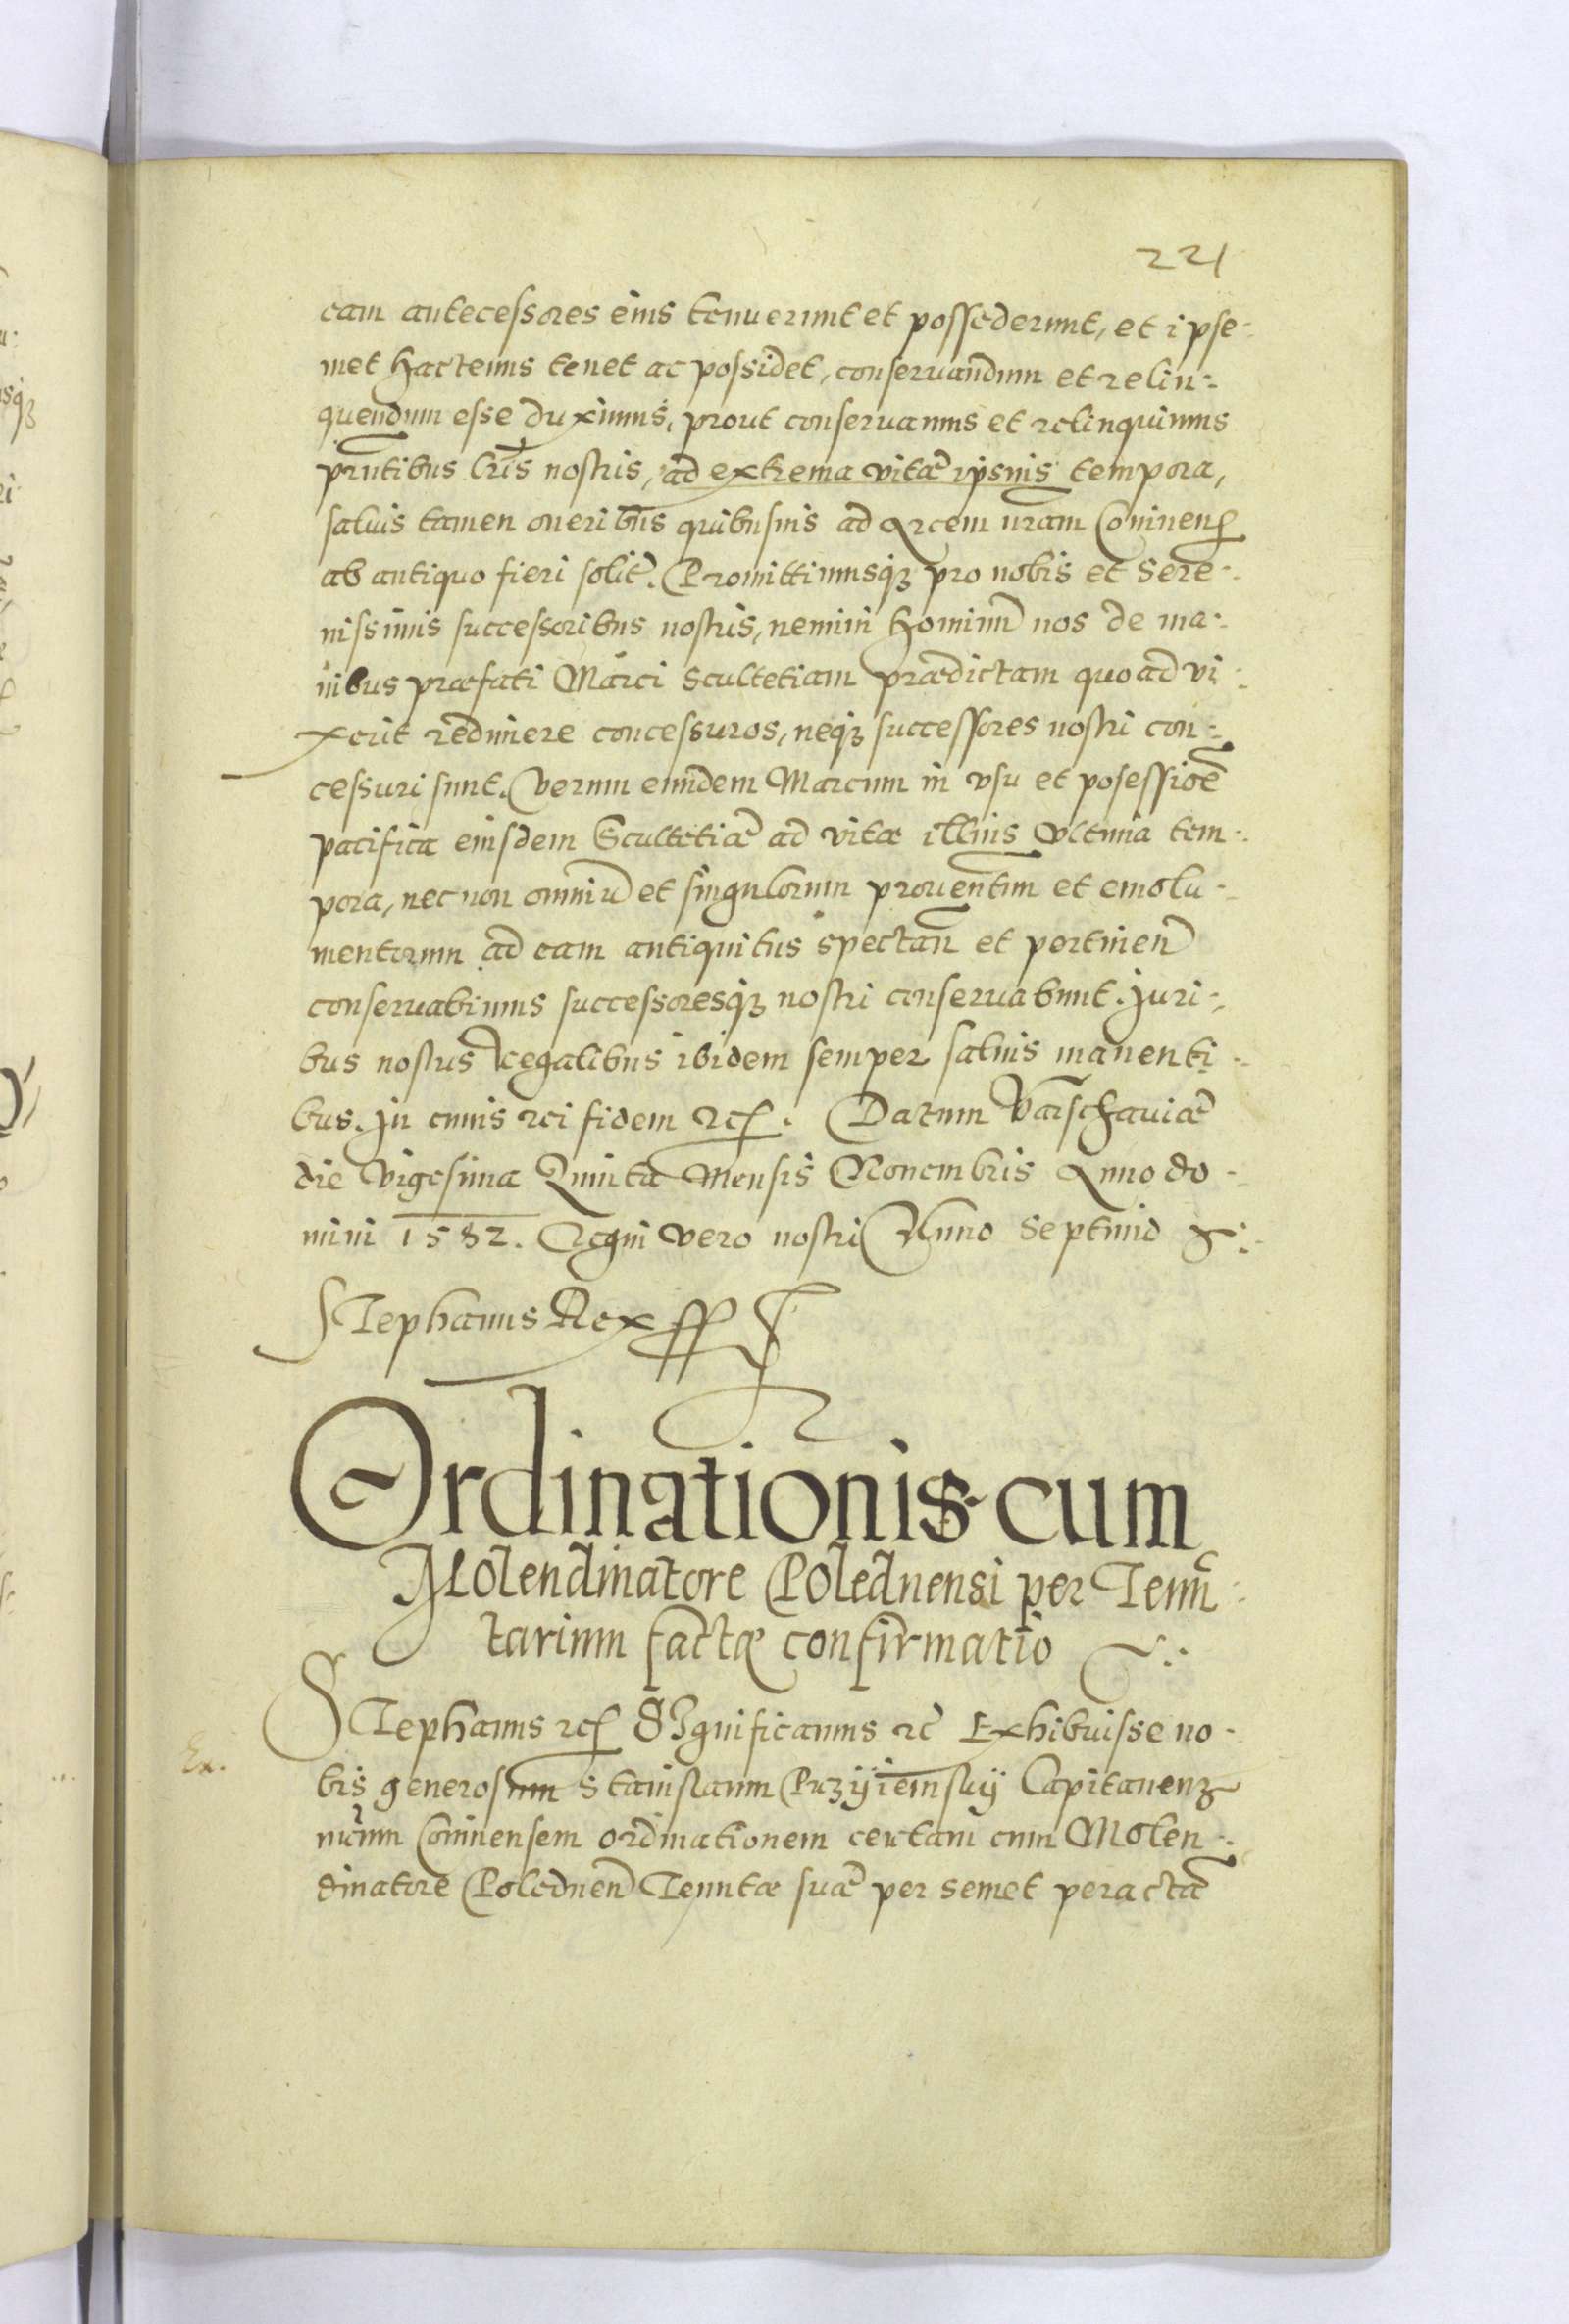 221
eam antecessores eius tenuerunt et possederunt, et ipse-
met hactenus tenet ac possidet, conservandum et relin-
quendum esse duximus, prout conservamus et relinquimus
prntibus lris nostris, ad extrema vitæ ipsius tempora,
salvis tamen oneribus quibusvis ad Arcem nram Coninen
ab antiquo fieri solit. Promittimusq₃ pro nobis et Sere-
nissimis successoribus nostris, nemini hominu nos de ma-
nibus præfati Marci Scultetiam prædictam quoad vi-
xerit redimere concessuros, neq₃ successores nostri con-
cessuri sunt. Verum eundem Marcum in usu et posessioe
pacifica eiusdem Scultetiæ ad vitæ illius ultima tem-
pora, nec non omniu et singulorum proventuum et emolu-
mentorum ad eam antiquitus spectan et pertinen
conservabimus successoresq₃ nostri conservabunt. Juri-
bus nostris Regalibus ibidem semper salvis manenti-
bus. In cuius rei fidem etc. Datum Varschaviæ
die Vigesima Quinta Mensis Novembris Anno do-
mini 1582. Regni vero nostri Anno Septimo &
Stephanus Rex ff
Ordinationis cum
Molendinatore Polednensi per Tenu-
tarium factæ confirmatio
Ex.
Stephanus etc Significamus etc Exhibuisse no-
bis generosum Stanislaum Capitaneu
nrum Coninensem ordinationem certam cum Molen-
dinatore Polednen Tenutæ suæ per semet peracta